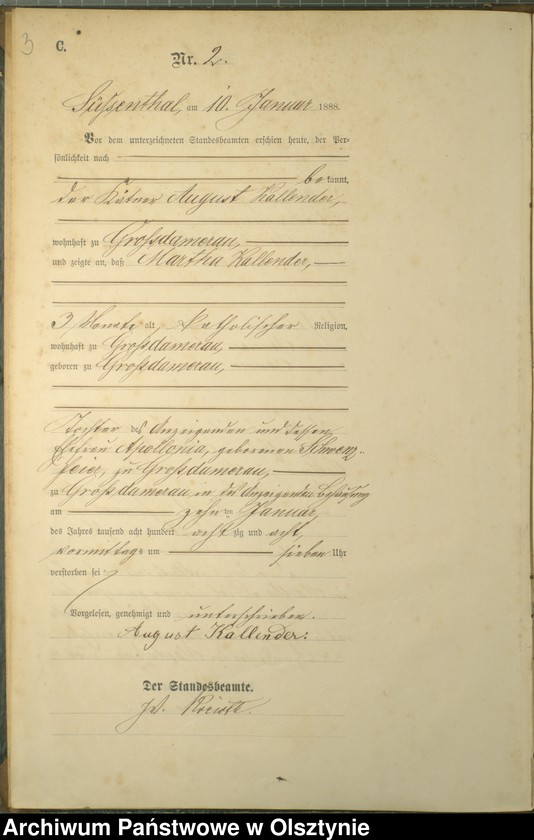 3
C.
Nr. 2.
Süßenthal, am 10. Januar 1888.
Vor dem unterzeichneten Standesbeamten erschien heute, der Per-
sönlichkeit nach
bekannt,
der Kätner August Kallender,
wohnhaft zu Großdamerau,
und zeigte an, daß Martha Kallender,
3 Monate alt, katholischer Religion,
wohnhaft zu Großdamerau,
geboren zu Großdamerau,
Tochter des Anzeigenden und dessen
Ehefrau Apollonia, geborenen
zu Großdamerau,
zu Großdamerau in des Anzeigenden Behausung
am zehnten Januar
des Jahres tausend acht hundert achtzig und acht,
Vormittags um sieben Uhr
verstorben sei
Vorgelesen, genehmigt und unterschrieben.
August Kallender.
Der Standesbeamte.
Archiwum Państwowe w Olsztynie